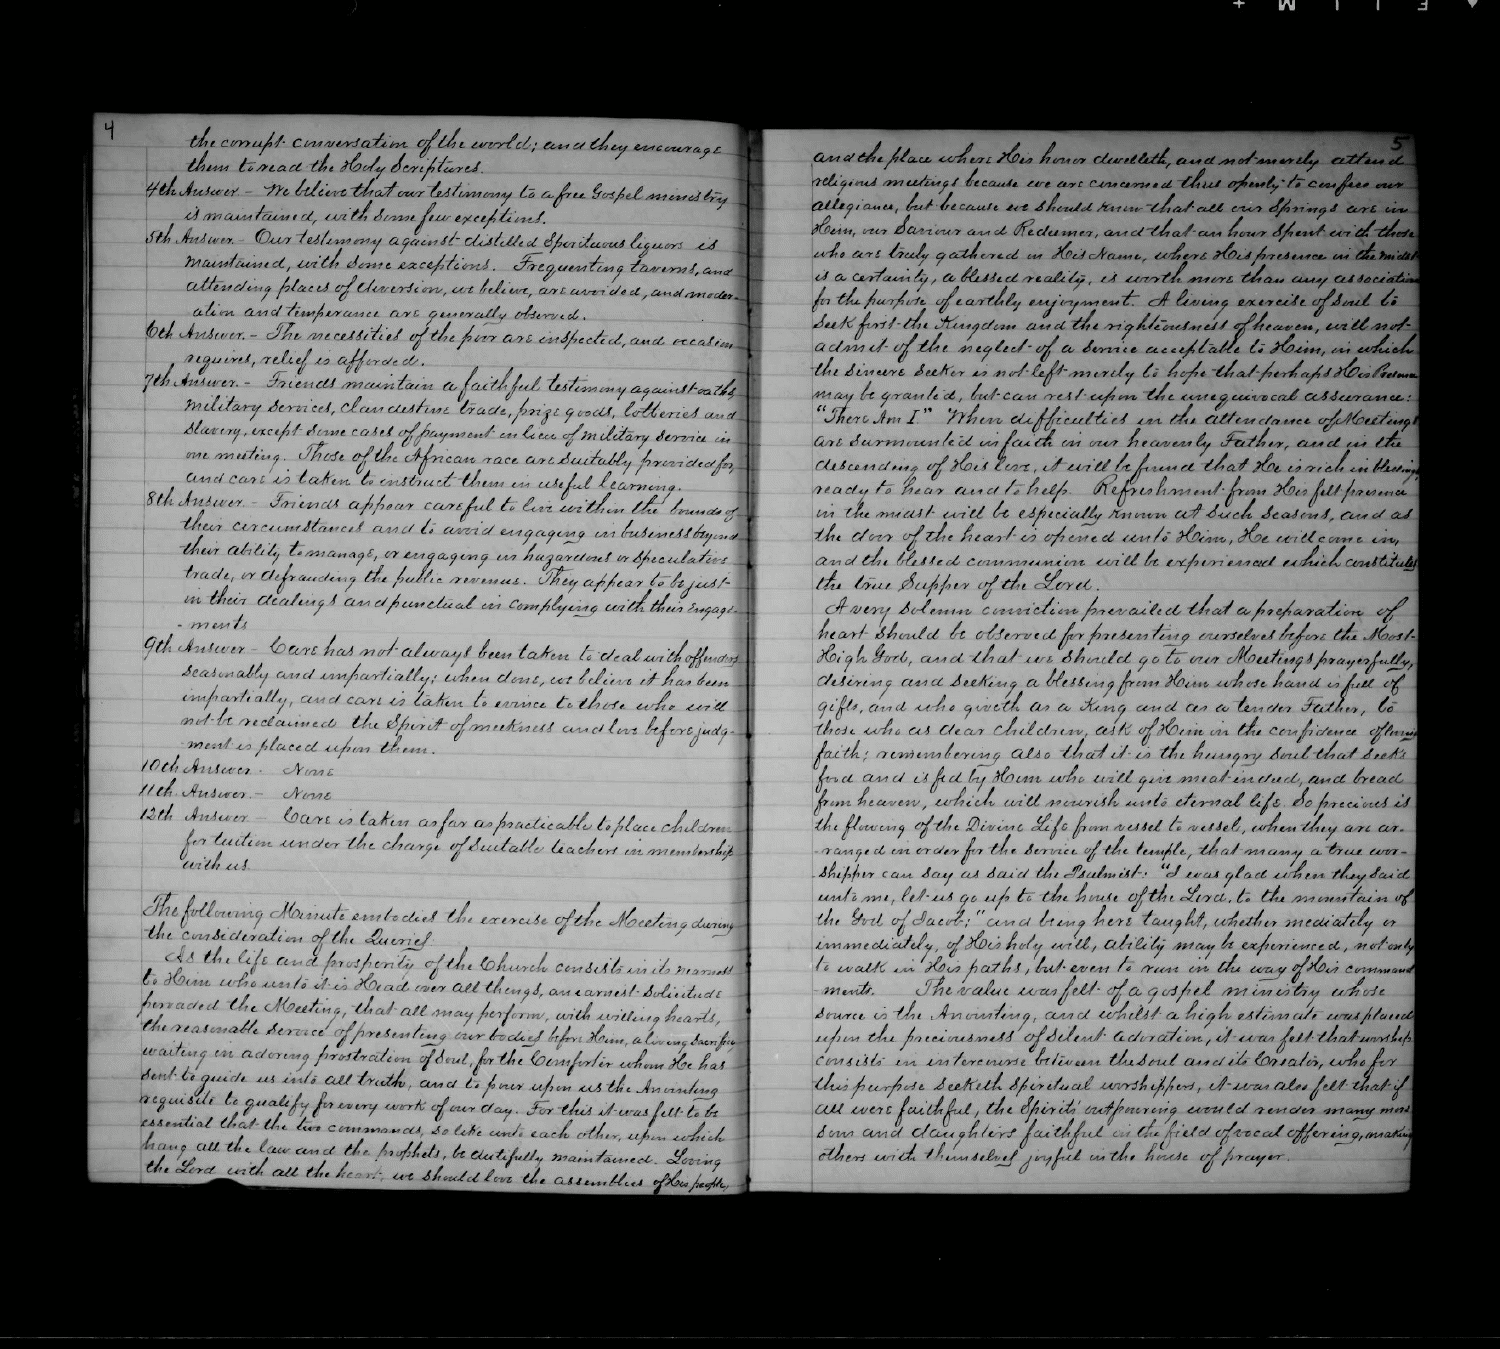 4
the corrupt conversation of the world; and they encourage
them to read the Holy Scriptures.
4th Answer - We believe that our testimony to a free Gospel ministry
is maintained, with some few exceptions.
5th Answer.- Our testimony against distilled Spirituous liquors is
maintained, with some exceptions. Frequenting taverns, and
attending places of diversion, we believe, are avoided, and moder-
ation and temperance are generally observed.
6th Answer.- The necessities of the poor are inspected, and occasion
requires, relief is afforded.
7th Answer.- Friends maintain a faithful testimony against oaths,
military services, clandestine trade, prize goods, lotteries and
slavery, except some cases of payment in lieu of military service in
one meeting. Those of the African race are suitably provided for,
and care is taken to instruct them in useful learning.
8th Answer - Friends appear careful to live within the bounds of
their circumstances and to avoid engaging in business beyond
their ability to manage, or engaging in hazardous or speculative
trade, or defrauding the public revenue. They appear to be just
in their dealings and punctual in complying with their engage-
-ments
9th Answer - Care has not always been taken to deal with offenders
seasonably and impartially; when done, we believe it has been
impartially, and care is taken to evince to those who will
not be reclaimed the Spirit of meekness and love before judg-
-ment is placed upon them.
10th Answer - None
11th Answer.- None
12th Answer - Care is taken as far as practicable to place children
for tuition under the charge of suitable teachers in membership
with us.
The following Minute embodies the exercise of the Meeting during
the consideration of the Queries
As the life and prosperity of the Church consists in its nearness
to Him who unto it is Head over all things, an earnest solicitude
pervaded the Meeting, that all may perform, with willing hearts,
the reasonable service of presenting our bodies before Him, a living sacrifice
waiting in adoring prostration of Soul, for the Comforter whom He has
sent to guide us into all truth, and to pour upon us the Anointing
requisite to qualify for every work of our day. For this it was felt to be
essential that the two commands, so like unto each other, upon which
hang all the law and the prophets, be dutifully maintained. Loving
the Lord with all the heart, we should love the assemblies of His people,
5
and the place where His honor dwelleth, and not merely attend
religious meetings because we are concerned thus openly to confess our
allegiance, but because we should know that all our Springs are in
Him, our Saviour and Redeemer, and that an hour spent with those
who are truly gathered in His Name, where His presence in the midst
is a certainty, a blessed reality, is worth more than any association
for the purpose of earthly enjoyment. A living exercise of soul to
seek first the Kingdom and the righteousness of heaven, will not
admit of the neglect of a service acceptable to Him, in which
the sincere seeker is not left merely to hope that perhaps His Presence
may be granted, but can rest upon the unequivocal assurance:
"There Am I." When difficulties in the attendance of Meetings
are surmounted in faith in our heavenly Father, and in the
descending of His love, it will be found that He is rich in blessings,
ready to hear and to help. Refreshment from His felt presence
in the midst will be especially known at such seasons, and as
the door of the heart is opened unto Him, He will come in,
and the blessed communion will be experienced which constitutes
the true Supper of the Lord.
A very solemn conviction prevailed that a preparation of
heart should be observed for presenting ourselves before the Most
High God, and that we should go to our Meetings prayerfully,
desiring and seeking a blessing from Him whose hand is full of
gifts, and who giveth as a King and as a tender Father, to
those who as dear children, ask of Him in the confidence of
faith; remembering also that it is the hungry soul that seeks
food and is fed by Him who will give meat indeed, and bread
from heaven, which will nourish unto eternal life. So precious is
the flowing of the Divine Life from vessel to vessel, when they are ar-
-ranged in order for the service of the temple, that many a true wor-
shipper can say as said the Psalmist: "I was glad when they said
unto me, let us go up to the house of the Lord. to the mountain of
the God of Jacob;" and being here taught, whether mediately or
immediately, of His holy will, ability may be experienced, not only
to walk in His paths, but even to run in the way of His command
ments. The value was felt of a gospel ministry whose
source is the Anointing, and whilst a high estimate was placed
upon the preciousness of silent adoration, it was felt that worship
consists in intercourse between the soul and its Creator, who for
this purpose seeketh spiritual worshippers, it was also felt that if
all were faithful, the Spirits' outpouring would render many more
sons and daughters faithful in the field of vocal offering, making
others with themselves joyful in the house of prayer.